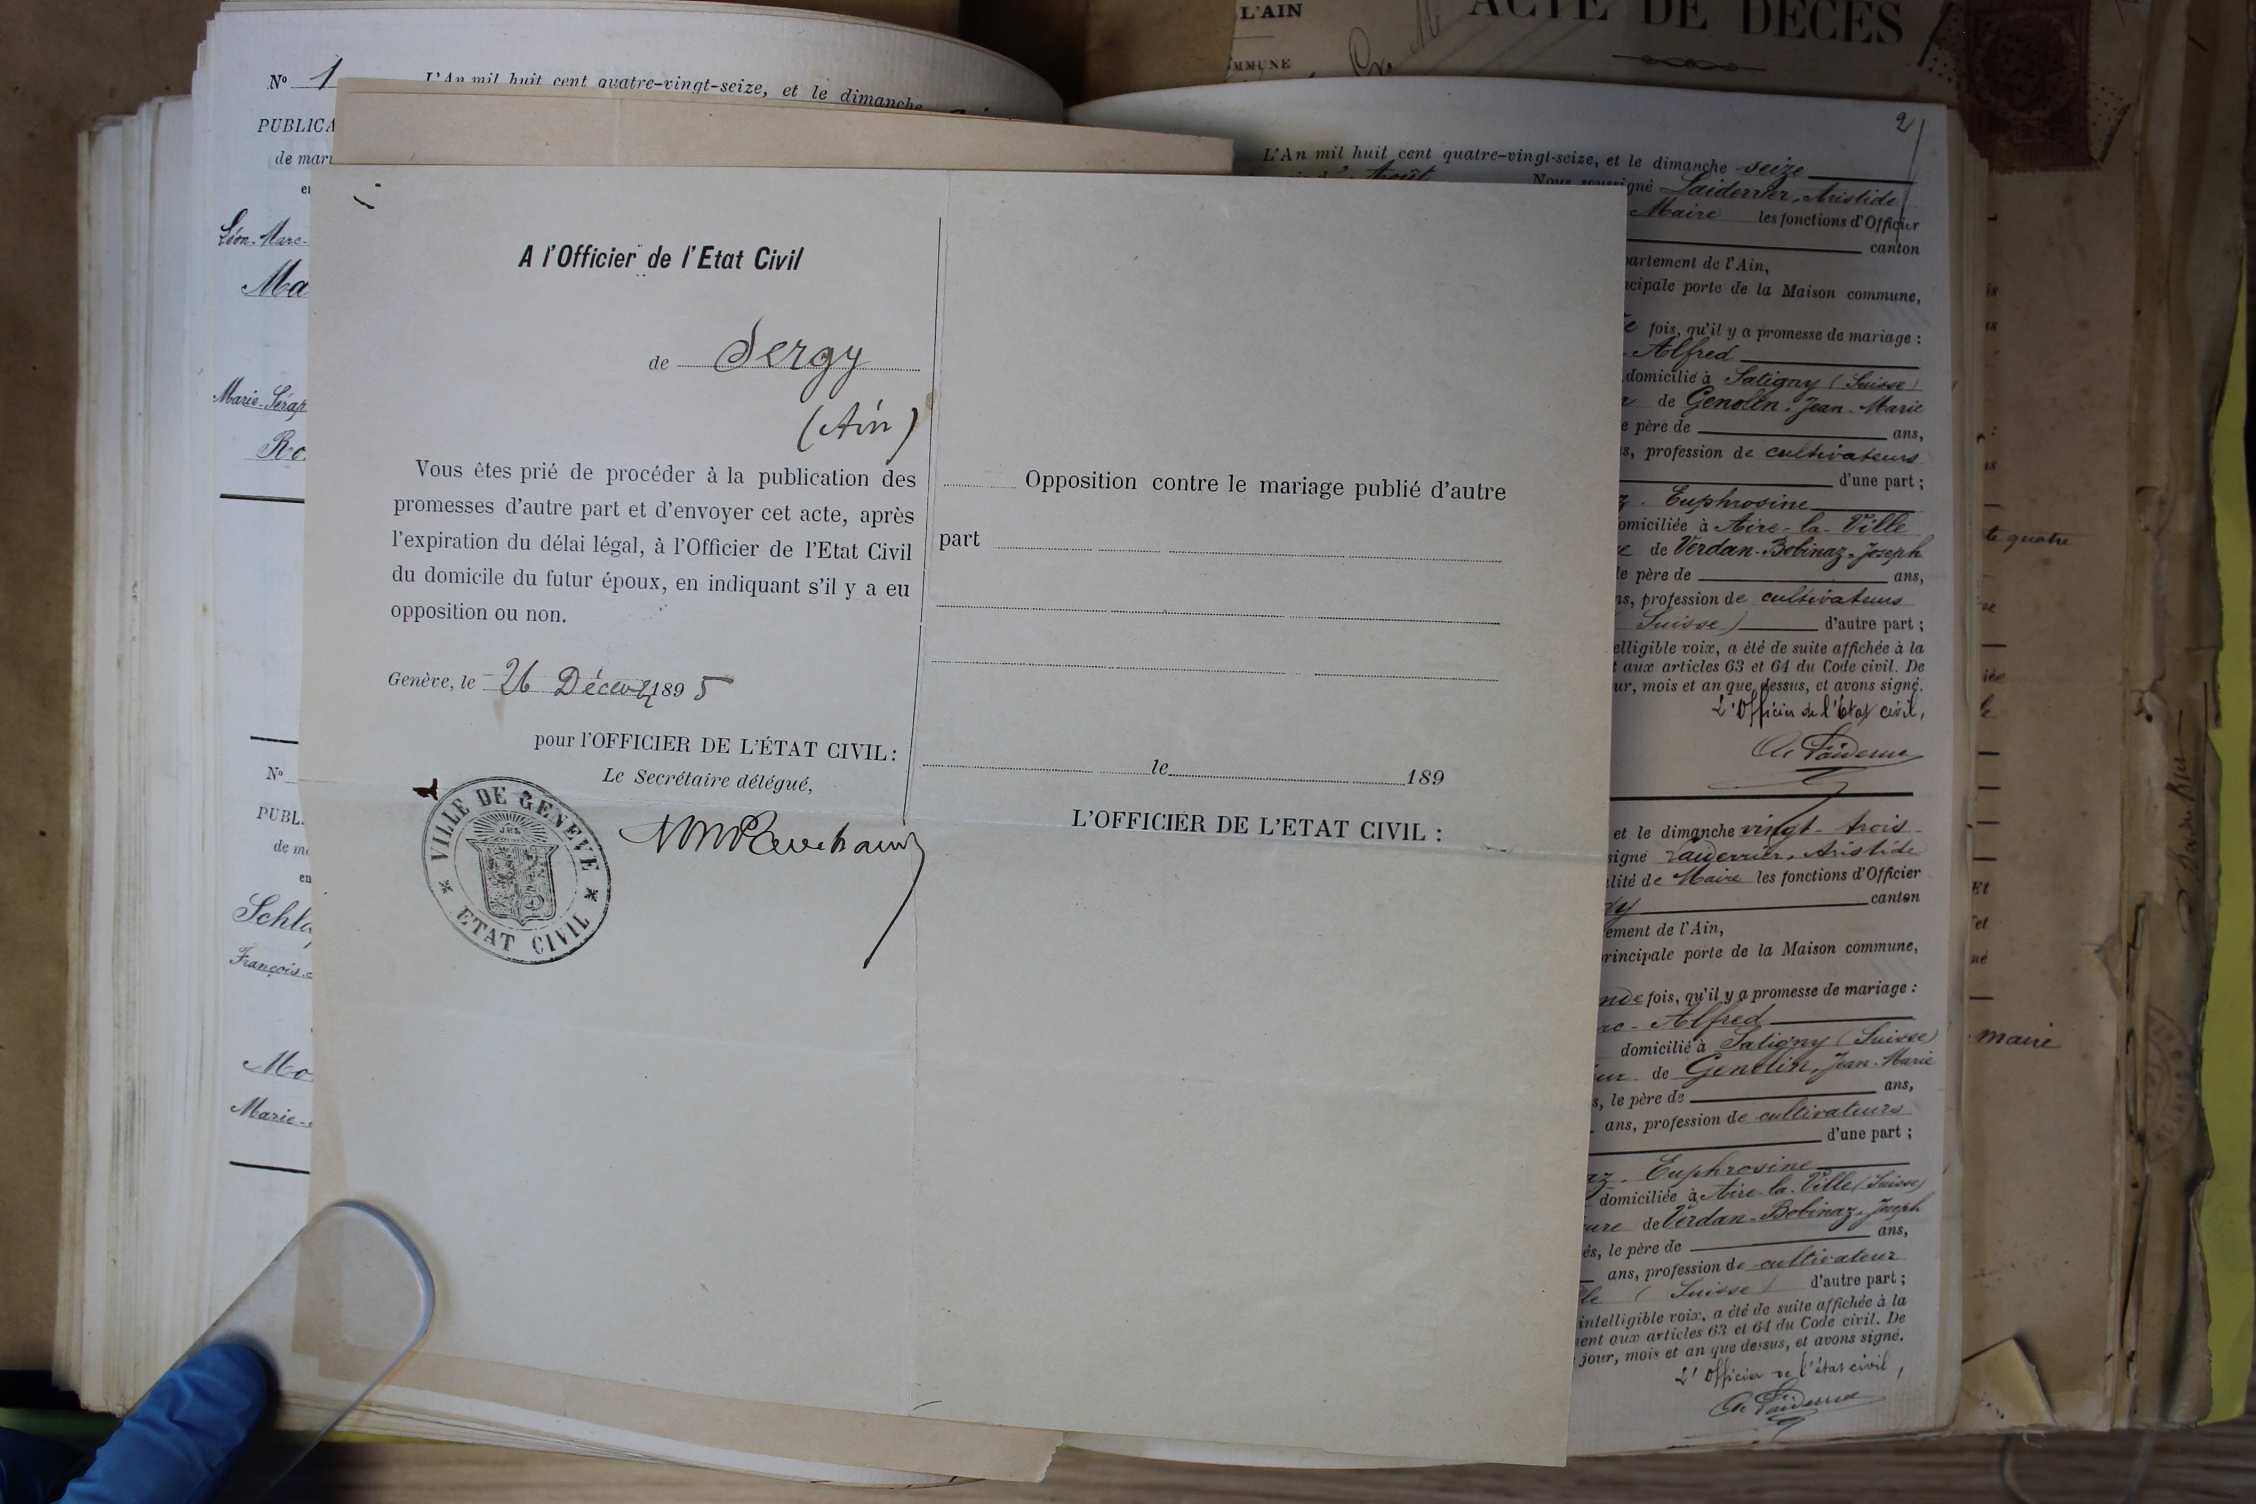 L'AIN
ACTE DE DÉCÈS
MMUNE
Nº 1
L'An mil huit cent quatre-vingt-seize, et le dimanche
PUBLICA
de mar
Léon-Marc-
Ma
Marie-Sérap
Ro
Nº
PUBL
de m
en
Schla
François
Mo
Marie-
A l'Officier de l'Etat Civil
de Sergy
(Ain)
Vous êtes prié de procéder à la publication des
promesses d'autre part et d'envoyer cet acte, après
l'expiration du délai légal, à l'Officier de l'Etat Civil
du domicile du futur époux, en indiquant s'il y a eu
opposition ou non.
Genève, le 26 Décemb 1895
pour l'OFFICIER DE L'ÉTAT CIVIL:
Le Secrétaire délégué,
VILLE DE GENEVE
ETAT CIVIL
Opposition contre le mariage publié d'autre
part
le 189
L'OFFICIER DE L'ETAT CIVIL :
2
L'An mil huit cent quatre-vingt-seize, et le dimanche seize
Août Nous soussigné Laiderrier, Aristide
Maire les fonctions d'Officier
canton
partement de l'Ain,
ncipale porte de la Maison commune,
fois, qu'il y a promesse de mariage :
Alfred
domicilié à Satigny (Suisse)
de Genolin, Jean-Marie
e père de ans,
s, profession de cultivateurs
d'une part ;
z. Euphrosine
omiciliée à Aire-la-Ville
de Verdan-Bobinaz, Joseph
le père de ans,
ns, profession de cultivateurs
Suisse) d'autre part ;
elligible voix, a été de suite affichée à la
t aux articles 63 et 64 du Code civil. De
ur, mois et an que dessus, et avons signé.
L'Officier de l'état civil,
et le dimanche vingt-trois
signé Laiderrier, Aristide
lité de Maire les fonctions d'Officier
gy canton
ement de l'Ain,
rincipale porte de la Maison commune,
nde fois, qu'il y a promesse de mariage :
rc-Alfred
domicilié à Satigny (Suisse)
eur de Genolin, Jean-Marie
s, le père de ans,
ans, profession de cultivateurs
d'une part ;
az. Euphrosine
domiciliée à Aire-la-Ville (Suisse)
eure de Verdan-Bobinaz, Joseph
és, le père de ans,
ans, profession de cultivateur
lle (Suisse) d'autre part ;
intelligible voix, a été de suite affichée à la
ent aux articles 63 et 64 du Code civil. De
jour, mois et an que dessus, et avons signé.
L'Officier de l'état civil,
te quatre
maire